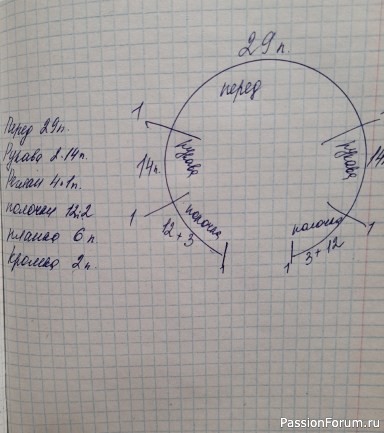 29 п.
перед
Перед 29п.
Рукава 2·14п.
Реглан 4·1п.
полочки 12·2
планка 6 п.
Кромка 2п.
1
рукава
14п.
1
полочка
12 + 3
1
рукава
14
1
полочка
3 + 12
1
PassionForum.ru